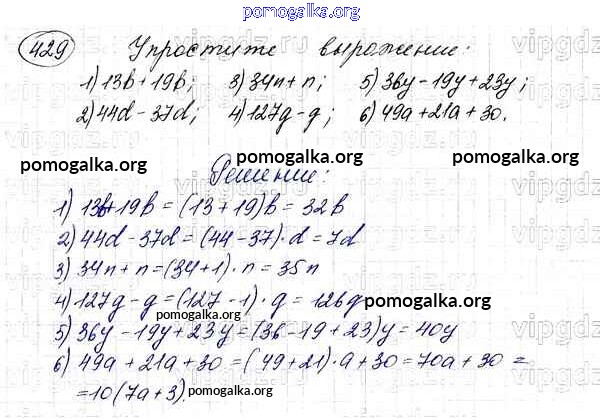 pomogalka.org
429 Упростите выражение:
1) 13b + 19b; 3) 34n + n; 5) 36y - 19y + 23y;
2) 44d - 37d; 4) 127g - g; 6) 49a + 21a + 30.
pomogalka.org pomogalka.org pomogalka.org
Решение:
1) 13b + 19b = (13 + 19)b = 32b
2) 44d - 37d = (44 - 37) · d = 7d
3) 34n + n = (34 + 1) · n = 35n
4) 127g - g = (127 - 1) · g = 126g pomogalka.org
5) 36y - 19y + 23y = (36 - 19 + 23)y = 40y
6) 49a + 21a + 30 = (49 + 21) · a + 30 = 70a + 30 =
= 10(7a + 3). pomogalka.org